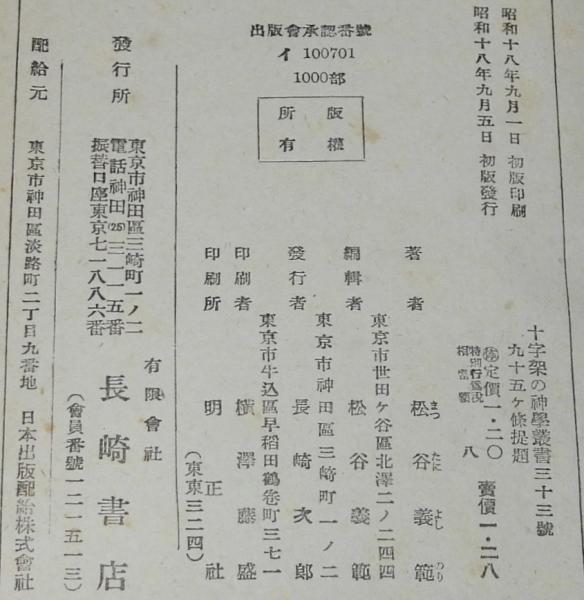 昭和十八年九月一日 初版印刷
昭和十八年九月五日 初版發行
出版會承認番號
イ 100701
1000部
版權
所有
十字架の神學叢書三十三號
九十五ケ條提題
㊕定價一・二〇 賣價一・二八
特別行爲税
相當額 八
著者 松谷義範
まつ たに よし のり
東京市世田ケ谷區北澤二ノ二四四
編輯者 松谷義範
東京市神田區三崎町一ノ二
發行者 長崎次郎
東京市牛込區早稻田鶴卷町三七一
印刷者 横澤藤盛
印刷所 明正社
(東東三二四)
發行所
東京市神田區三崎町一ノ二
電話神田(25)三一一五番
振替口座東京七一八八六番
有限會社
長崎書店
(會員番號一二一五一三)
配給元 東京市神田區淡路町二丁目九番地 日本出版配給株式會社